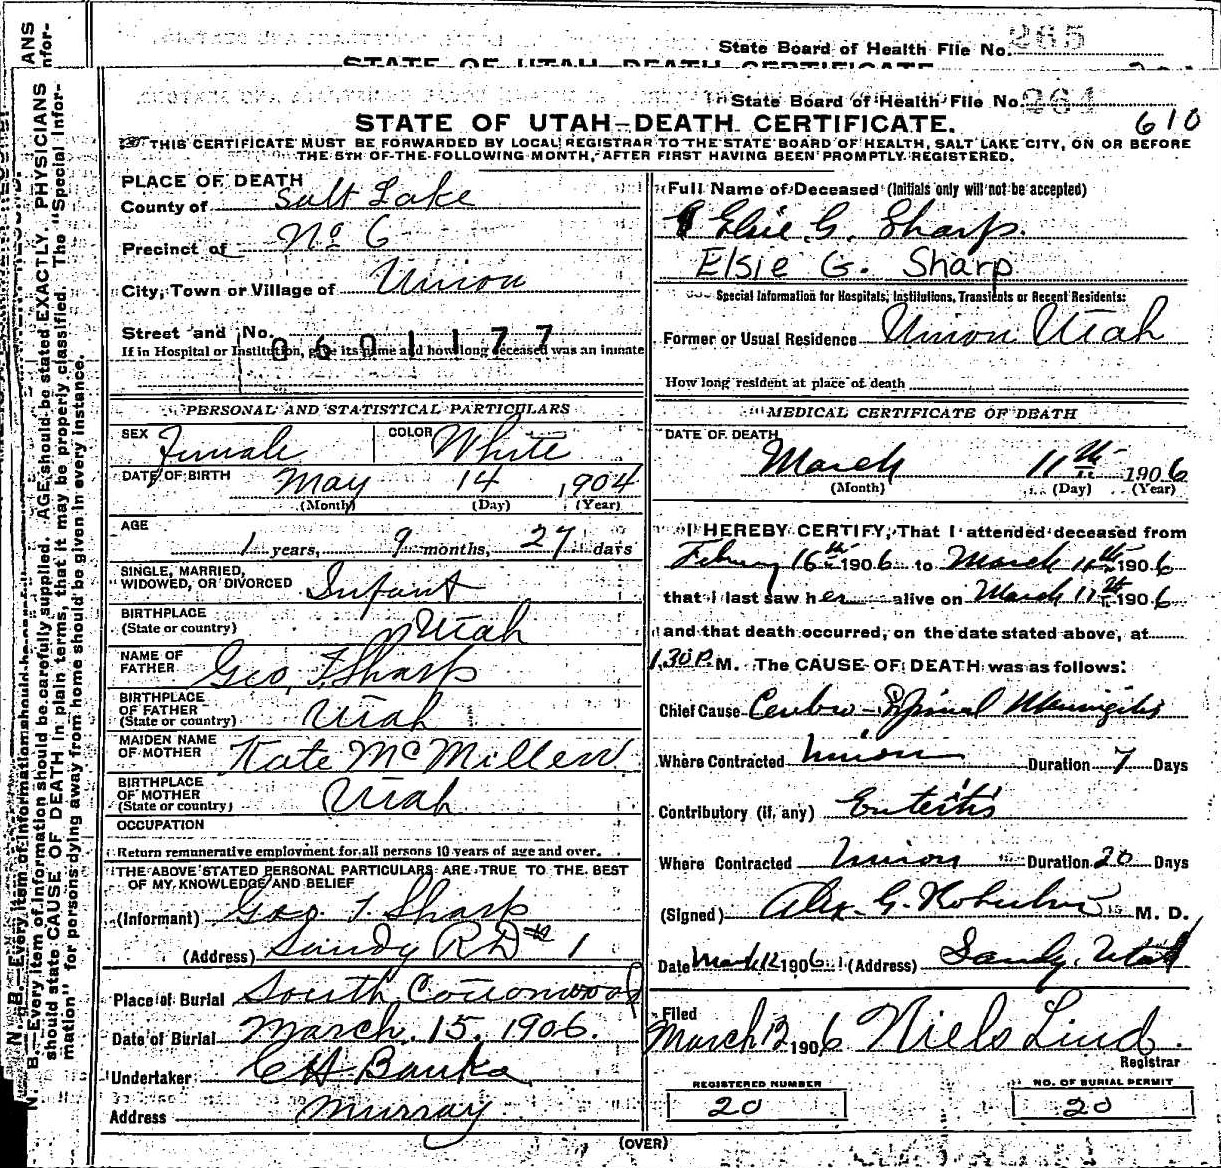 State Board of Health File No. 265
STATE OF UTAH—DEATH CERTIFICATE
State Board of Health File No. 264
STATE OF UTAH—DEATH CERTIFICATE.
610
THIS CERTIFICATE MUST BE FORWARDED BY LOCAL REGISTRAR TO THE STATE BOARD OF HEALTH, SALT LAKE CITY, ON OR BEFORE
THE 5TH OF THE FOLLOWING MONTH, AFTER FIRST HAVING BEEN PROMPTLY REGISTERED.
PLACE OF DEATH
County of Salt Lake
Precinct of No 6
City, Town or Village of Union
Street and No.
0601177
If in Hospital or Institution, give its name and how long deceased was an inmate
PERSONAL AND STATISTICAL PARTICULARS
SEX Female COLOR White
DATE OF BIRTH May 14 1904
(Month) (Day) (Year)
AGE
1 years, 9 months, 27 days
SINGLE, MARRIED,
WIDOWED, OR DIVORCED Infant
BIRTHPLACE
(State or country) Utah
NAME OF
FATHER Geo. T. Sharp
BIRTHPLACE
OF FATHER
(State or country) Utah
MAIDEN NAME
OF MOTHER Kate McMillen
BIRTHPLACE
OF MOTHER
(State or country) Utah
OCCUPATION
Return remunerative employment for all persons 10 years of age and over.
THE ABOVE STATED PERSONAL PARTICULARS ARE TRUE TO THE BEST
OF MY KNOWLEDGE AND BELIEF
(Informant) Geo. T. Sharp
(Address) Sandy RD No 1
Place of Burial South Cottonwood
Date of Burial March. 15. 1906.
Undertaker C H Banks
Address Murray
Full Name of Deceased (Initials only will not be accepted)
Elsie. G. Sharp.
Elsie G. Sharp
Special Information for Hospitals, Institutions, Transients or Recent Residents:
Former or Usual Residence Union Utah
How long resident at place of death
MEDICAL CERTIFICATE OF DEATH
DATE OF DEATH
March 11th 1906
(Month) (Day) (Year)
I HEREBY CERTIFY, That I attended deceased from
Februay 16th 1906 to March 11th 1906
that I last saw her alive on March 11th 1906
and that death occurred, on the date stated above, at
1.30 P. M. The CAUSE OF DEATH was as follows:
Chief Cause Cerebro-Spinal Meningitis
Where Contracted Union Duration 7 Days
Contributory (if any) Enteritis
Where Contracted Union Duration 20 Days
(Signed) Alex. G. M. D.
Date March 12 1906 (Address) Sandy. Utah
Filed
March 13 1906 Niels Lind.
Registrar
REGISTERED NUMBER
20
NO. OF BURIAL PERMIT
20
(OVER)
N. B.—Every item of information should be carefully supplied. AGE should be stated EXACTLY. PHYSICIANS
should state CAUSE OF DEATH in plain terms, that it may be properly classified. The "Special Infor-
mation" for persons dying away from home should be given in every instance.